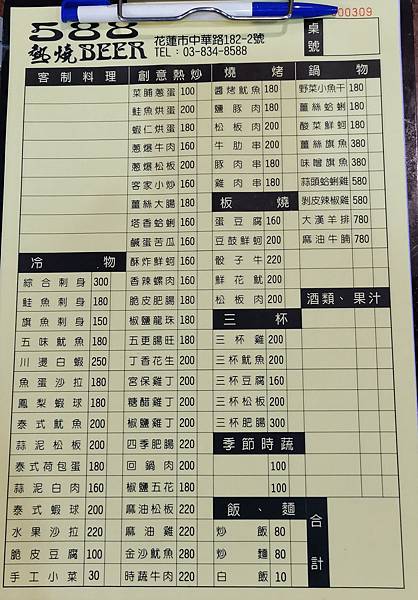 588
熱燒BEER
花蓮市中華路182-2號
TEL：03-834-8588
桌號
000309
客制料理
創意熱炒
菜脯蔥蛋 100
鮭魚烘蛋 200
蝦仁烘蛋 180
蔥爆牛肉 160
蔥爆松板 200
客家小炒 160
薑絲大腸 180
塔香蛤蜊 160
鹹蛋苦瓜 160
酥炸鮮蚵 160
香辣螺肉 160
脆皮肥腸 180
椒鹽龍珠 180
五更腸旺 180
丁香花生 200
宮保雞丁 200
糖醋雞丁 200
椒鹽雞丁 200
四季肥腸 220
回鍋肉 200
椒鹽五花 180
麻油松板 220
麻油雞 220
金沙魷魚 280
時蔬牛肉 220
燒烤
醬烤魷魚 180
鹽豚肉 180
松板肉 200
牛肋串 200
豚肉串 180
雞肉串 180
板燒
蛋豆腐 160
豆鼓鮮蚵 200
骰子牛 220
鮮花魷 200
松板肉 200
三杯
三杯雞 200
三杯魷魚 200
三杯豆腐 160
三杯松板 200
三杯肥腸 300
季節時蔬
100
100
飯、麵
炒飯 80
炒麵 80
白飯 10
鍋物
野菜小魚干 180
薑絲蛤蜊 180
酸菜鮮蚵 180
薑絲旗魚 380
味噌旗魚 380
蒜頭蛤蜊雞 580
剝皮辣椒雞 580
大漢羊排 780
麻油牛腩 780
酒類、果汁
合計
冷物
綜合刺身 300
鮭魚刺身 180
旗魚刺身 150
五味魷魚 180
川燙白蝦 250
魚蛋沙拉 180
鳳梨蝦球 180
泰式魷魚 200
蒜泥松板 200
泰式荷包蛋 180
蒜泥白肉 160
泰式蝦球 200
水果沙拉 220
脆皮豆腐 100
手工小菜 30